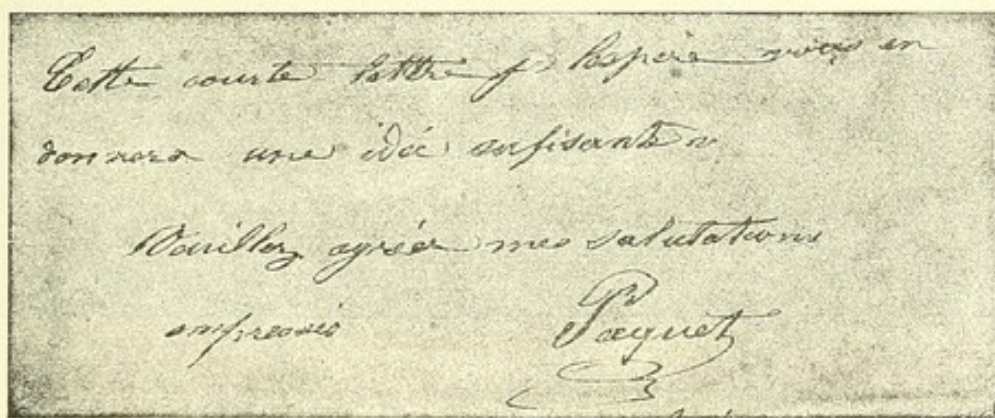 Cette courte lettre j hespère vous en
donnera une idée sufisante
Vauillez agréer mes salutations
empressés
Paquet